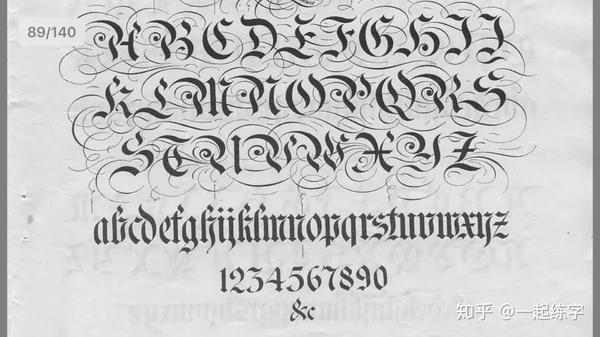 89/140
ABCDEFGHIJ
KLMNOPQRS
STUVWXYZ
abcdefghijklmnopqrstuvwxyz
1234567890
&c
知乎 @一起练字